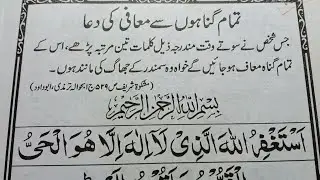 تمام گناہوں سے معافی کی دعا
جس شخص نے سوتے وقت مندرجہ ذیل کلمات تین مرتبہ پڑھے، اس کے
تمام گناہ معاف ہو جائیں گے خواہ وہ سمندر کے جھاگ کی مانند ہوں۔
بِسْمِ اللهِ الرَّحْمٰنِ الرَّحِيْمِ
اَسْتَغْفِرُ اللهَ الَّذِىْ لَآ اِلٰهَ اِلَّا هُوَ الْحَىُّ